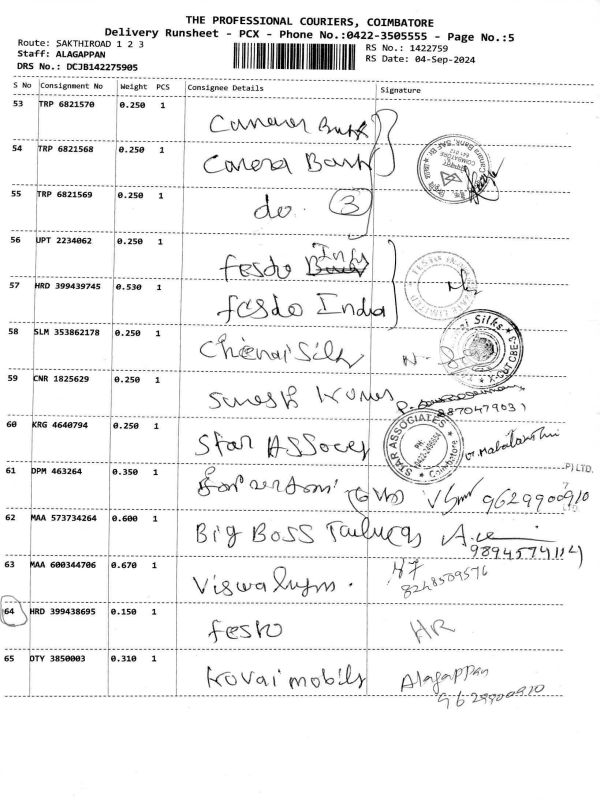 THE PROFESSIONAL COURIERS, COIMBATORE
Delivery Runsheet - PCX - Phone No.:0422-3505555 - Page No.:5
Route: SAKTHIROAD 1 2 3
RS No.: 1422759
Staff: ALAGAPPAN
RS Date: 04-Sep-2024
DRS No.: DCJB142275905
S No Consignment No Weight PCS Consignee Details Signature
53 TRP 6821570 0.250 1 Canara Bank
54 TRP 6821568 0.250 1 Canera Bank
55 TRP 6821569 0.250 1 do. 3
56 UPT 2234062 0.250 1 festo India
57 HRD 399439745 0.530 1 festo India
58 SLM 353862178 0.250 1 Chenai Silk
59 CNR 1825629 0.250 1 Suresh
8870479031
60 KRG 4640794 0.250 1 Star Assoces
STAR ASSOCIATES
Coimbatore
61 DPM 463264 0.350 1 9629900910
P) LTD.
62 MAA 573734264 0.600 1 Big Boss
9894574114
63 MAA 600344706 0.670 1
8248509576
64 HRD 399438695 0.150 1 festo HR
65 OTY 3850003 0.310 1 Kovai mobils Alagappan
9629900910